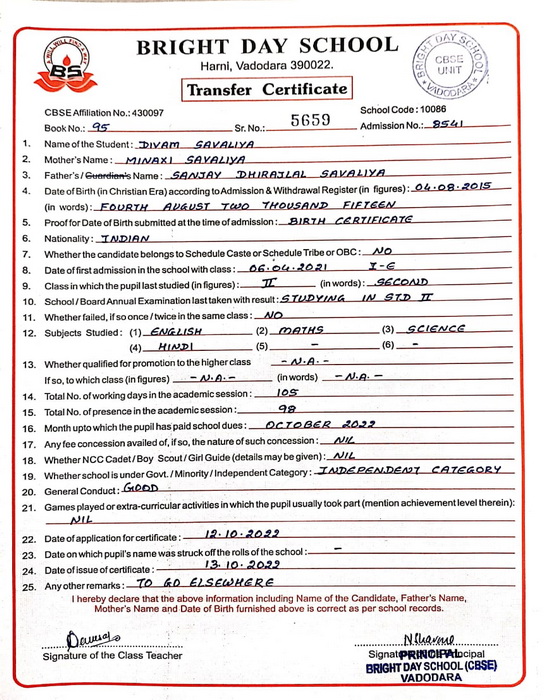 BRIGHT DAY SCHOOL
Harni, Vadodara 390022.
Transfer Certificate
BS
BRIGHT DAY SCHOOL
CBSE
UNIT
VADODARA
CBSE Affiliation No.: 430097 School Code : 10086
Book No.: 95 Sr. No.: 5659 Admission No.: 8541
1. Name of the Student : DIVAM SAVALIYA
2. Mother's Name : MINAXI SAVALIYA
3. Father's / Guardian's Name : SANJAY DHIRAJLAL SAVALIYA
4. Date of Birth (in Christian Era) according to Admission & Withdrawal Register (in figures) : 04.08.2015
(in words) : FOURTH AUGUST TWO THOUSAND FIFTEEN
5. Proof for Date of Birth submitted at the time of admission : BIRTH CERTIFICATE
6. Nationality : INDIAN
7. Whether the candidate belongs to Schedule Caste or Schedule Tribe or OBC : NO
8. Date of first admission in the school with class : 06.04.2021 I-E
9. Class in which the pupil last studied (in figures) : II (in words) : SECOND
10. School / Board Annual Examination last taken with result : STUDYING IN STD II
11. Whether failed, if so once / twice in the same class : NO
12. Subjects Studied : (1) ENGLISH (2) MATHS (3) SCIENCE
(4) HINDI (5) - (6) -
13. Whether qualified for promotion to the higher class - N.A. -
If so, to which class (in figures) - N.A. - (in words) - N.A. -
14. Total No. of working days in the academic session : 105
15. Total No. of presence in the academic session : 98
16. Month upto which the pupil has paid school dues : OCTOBER 2022
17. Any fee concession availed of, if so, the nature of such concession : NIL
18. Whether NCC Cadet / Boy Scout / Girl Guide (details may be given) : NIL
19. Whether school is under Govt. / Minority / Independent Category : INDEPENDENT CATEGORY
20. General Conduct : GOOD
21. Games played or extra-curricular activities in which the pupil usually took part (mention achievement level therein) :
NIL
22. Date of application for certificate : 12.10.2022
23. Date on which pupil's name was struck off the rolls of the school : -
24. Date of issue of certificate : 13.10.2022
25. Any other remarks : TO GO ELSEWHERE
I hereby declare that the above information including Name of the Candidate, Father's Name,
Mother's Name and Date of Birth furnished above is correct as per school records.
Signature of the Class Teacher
PRINCIPAL
BRIGHT DAY SCHOOL (CBSE)
VADODARA